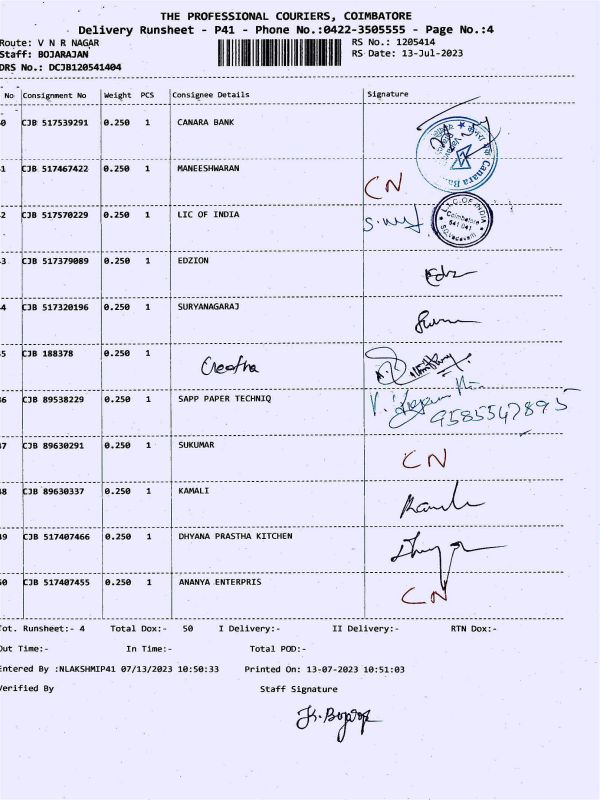 THE PROFESSIONAL COURIERS, COIMBATORE
Delivery Runsheet - P41 - Phone No.:0422-3505555 - Page No.:4
Route: V N R NAGAR RS No.: 1205414
Staff: BOJARAJAN RS Date: 13-Jul-2023
DRS No.: DCJB120541404
No Consignment No Weight PCS Consignee Details Signature
0 CJB 517539291 0.250 1 CANARA BANK
Canara Ba
1 CJB 517467422 0.250 1 MANEESHWARAN CN
2 CJB 517570229 0.250 1 LIC OF INDIA
L.I.C.OF INDIA
Coimbatore
641 041
3 CJB 517379089 0.250 1 EDZION
4 CJB 517320196 0.250 1 SURYANAGARAJ
5 CJB 188378 0.250 1
6 CJB 89538229 0.250 1 SAPP PAPER TECHNIQ 9585547895
47 CJB 89630291 0.250 1 SUKUMAR CN
48 CJB 89630337 0.250 1 KAMALI
49 CJB 517407466 0.250 1 DHYANA PRASTHA KITCHEN
50 CJB 517407455 0.250 1 ANANYA ENTERPRIS CN
Tot. Runsheet:- 4 Total Dox:- 50 I Delivery:- II Delivery:- RTN Dox:-
Out Time:- In Time:- Total POD:-
Entered By :NLAKSHMIP41 07/13/2023 10:50:33 Printed On: 13-07-2023 10:51:03
Verified By Staff Signature